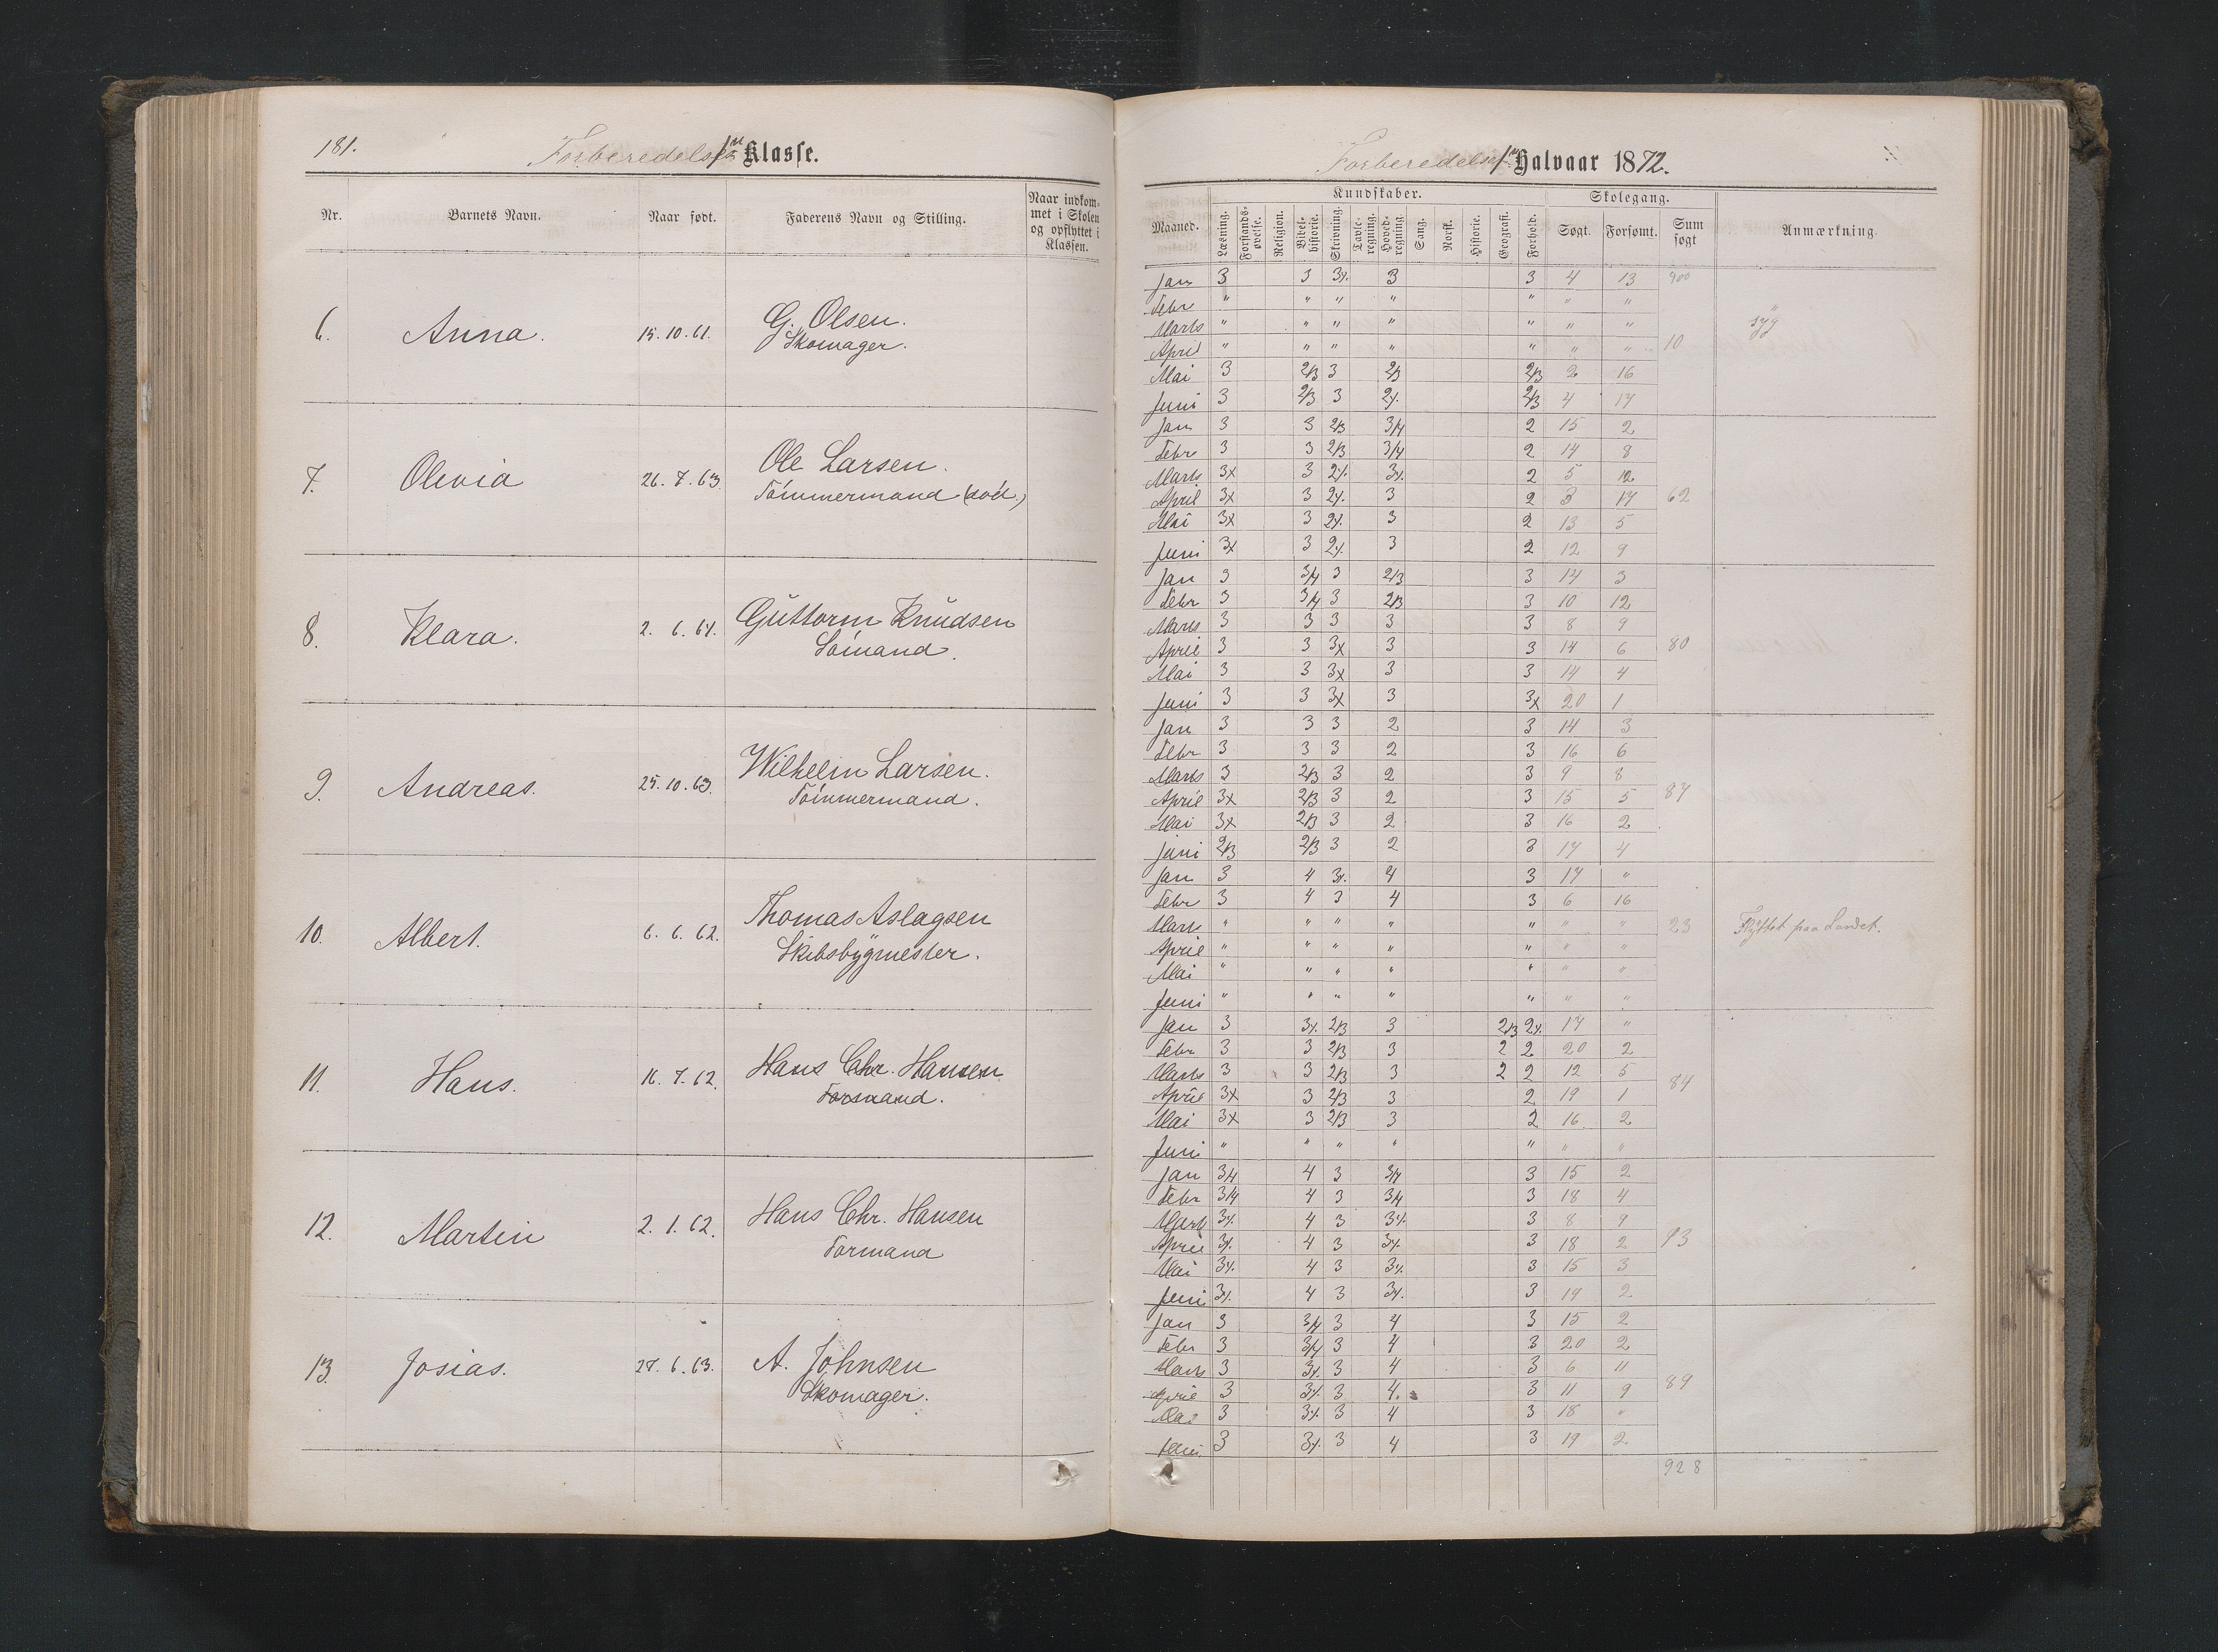 181.
Forberedelses Klasse.
Nr.
Barnets Navn.
Naar født.
Faderens Navn og Stilling.
Naar indkom-
met i Skolen
og opflyttet i
Klassen.
6. Anna. 15.10.61. G. Olsen.
Skomager.
7. Olevia 26.7.63. Ole Larsen.
Tömmermand (död.)
8. Klara. 2.6.64. Guttorm Knudsen
Sömand.
9. Andreas. 25.10.63. Wilhelm Larsen.
Tömmermand.
10. Albert. 6.6.62. Thomas Aslagsen
Skibsbygmester.
11. Hans. 16.7.62. Hans Chr. Hansen
Formand.
12. Martin 2.1.62. Hans Chr. Hansen
Formand
13. Josias. 27.6.63. A. Johnsen
Skomager.
Forberedelses Halvaar 1872.
Kundskaber.
Skolegang.
Maaned.
Læsning.
Forstands-
øvelse.
Religion.
Bibel-
historie.
Skrivning.
Tavle-
regning.
Hoved-
regning.
Sang.
Norsk.
Historie.
Geografi.
Forhold.
Søgt.
Forsømt.
Sum
søgt
Anmærkning.
Jan 3 3 3/4. 3 3 4 13
Febr " " " " " " "
Marts " " " " " " " syg
April " " " " " " " 10
Mai 3 2/3 3 2/3 2/3 2 16
Juni 3 2/3 3 2/4. 2/3 4 17
Jan 3 3 2/3 3/4 2 15 2
Febr 3 3 2/3 3/4 2 14 8
Marts 3x 3 2/4. 3/4. 2 5 12
April 3x 3 2/4. 3 2 3 17 62
Mai 3x 3 2/4. 3 2 13 5
Juni 3x 3 2/4. 3 2 12 9
Jan 3 3/4 3 2/3 3 14 3
Febr 3 3/4 3 2/3 3 10 12
Marts 3 3 3 3 3 8 9
April 3 3 3x 3 3 14 6 80
Mai 3 3 3x 3 3 14 4
Juni 3 3 3x 3 3x 20 1
Jan 3 3 3 2 3 14 3
Febr 3 3 3 2 3 16 6
Marts 3 2/3 3 2 3 9 8
April 3x 2/3 3 2 3 15 5 87
Mai 3x 2/3 3 2 3 16 2
Juni 2/3 2/3 3 2 3 17 4
Jan 3 4 3/4. 4 3 17 "
Febr 3 4 3 4 3 6 16
Marts " " " " " " " 23 Flyttet paa Landet.
April " " " " " " "
Mai " " " " " " "
Juni " " " " " " "
Jan 3 3/4. 2/3 3 2/3 2/4. 17 "
Febr 3 3 2/3 3 2 2 20 2
Marts 3 3 2/3 3 2 2 12 5
84
April 3x 3 2/3 3 2 19 1
Mai 3x 3 2/3 3 2 16 2
Juni " " " " " " "
Jan 3/4 4 3 3/4 3 15 2
Febr 3/4 4 3 3/4 3 18 4
Marts 3/4. 4 3 3/4. 3 8 9
April 3/4. 4 3 3/4. 3 18 2 93
Mai 3/4. 4 3 3/4. 3 15 3
Juni 3/4. 4 3 3/4. 3 19 2
Jan 3 3/4 3 4 3 15 2
Febr 3 3/4 3 4 3 20 2
Marts 3 3/4. 3 4 3 6 11
April 3 3/4. 3 4. 3 11 9 89
Mai 3 3/4. 3 4 3 18 "
Juni 3 3/4. 3 4 3 19 2
928